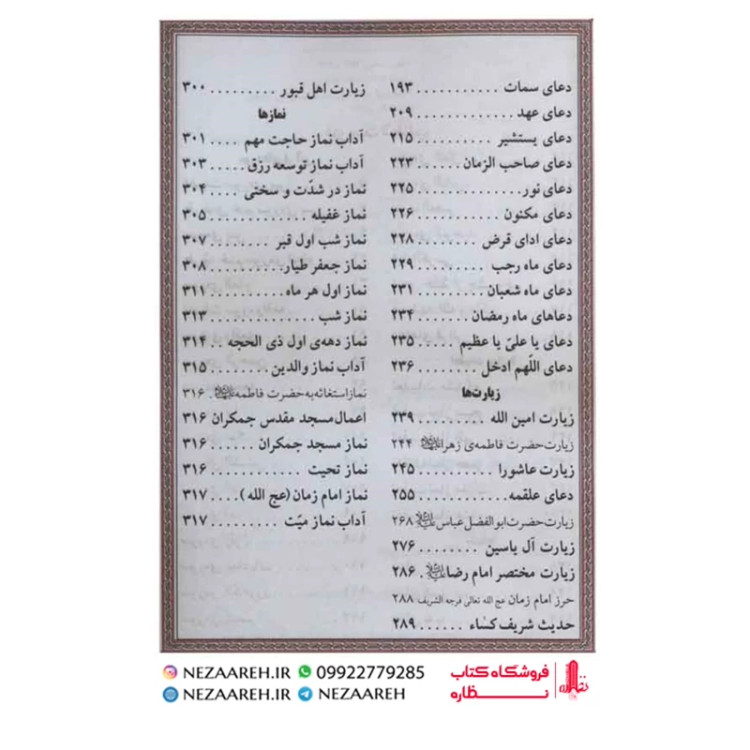 دعای سمات ........... ۱۹۳
دعای عهد ............ ۲۰۹
دعای یستشیر ......... ۲۱۵
دعای صاحب الزمان .... ۲۲۳
دعای نور............. ۲۲۵
دعای مکنون .......... ۲۲۶
دعای ادای قرض ....... ۲۲۸
دعای ماه رجب ........ ۲۲۹
دعای ماه شعبان ...... ۲۳۱
دعاهای ماه رمضان .... ۲۳۴
دعای یا علیّ یا عظیم .... ۲۳۵
دعای اللّهم ادخل ...... ۲۳۶
زیارت‌ها
زیارت امین الله ........ ۲۳۹
زیارت حضرت فاطمه‌ی زهرا ۲۴۴
زیارت عاشورا ........ ۲۴۵
دعای علقمه .......... ۲۵۵
زیارت حضرت ابوالفضل عباس ۲۶۸
زیارت آل یاسین ........ ۲۷۶
زیارت مختصر امام رضا . ۲۸۶
حرز امام زمان عج الله تعالی فرجه الشریف ۲۸۸
حدیث شریف کساء ...... ۲۸۹
زیارت اهل قبور ......... ۳۰۰
نمازها
آداب نماز حاجت مهم .... ۳۰۱
آداب نماز توسعه رزق..... ۳۰۳
نماز در شدّت و سختی ..... ۳۰۴
نماز غفیله ............ ۳۰۵
نماز شب اول قبر ....... ۳۰۷
نماز جعفر طیار......... ۳۰۸
نماز اول هر ماه......... ۳۱۱
نماز شب ............. ۳۱۳
نماز دهه‌ی اول ذی الحجه .. ۳۱۴
آداب نماز والدین ....... ۳۱۵
نماز استغاثه به حضرت فاطمه . ۳۱۶
اعمال مسجد مقدس جمکران ۳۱۶
نماز مسجد جمکران ...... ۳۱۶
نماز تحیت ............ ۳۱۶
نماز امام زمان (عج الله).... ۳۱۷
آداب نماز میّت ......... ۳۱۷
NEZAAREH.IR 09922779285
NEZAAREH.IR NEZAAREH
فروشگاه کتاب
نظاره